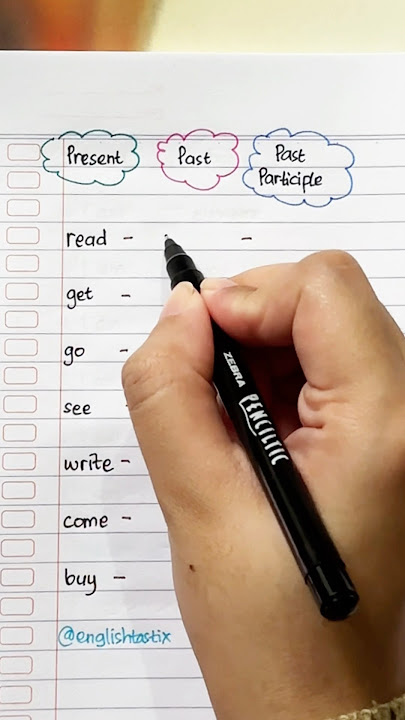 Present Past Past
Participle
read - -
get -
go -
see -
write -
come -
buy -
@englishtastix
ZEBRA PENCILTIC